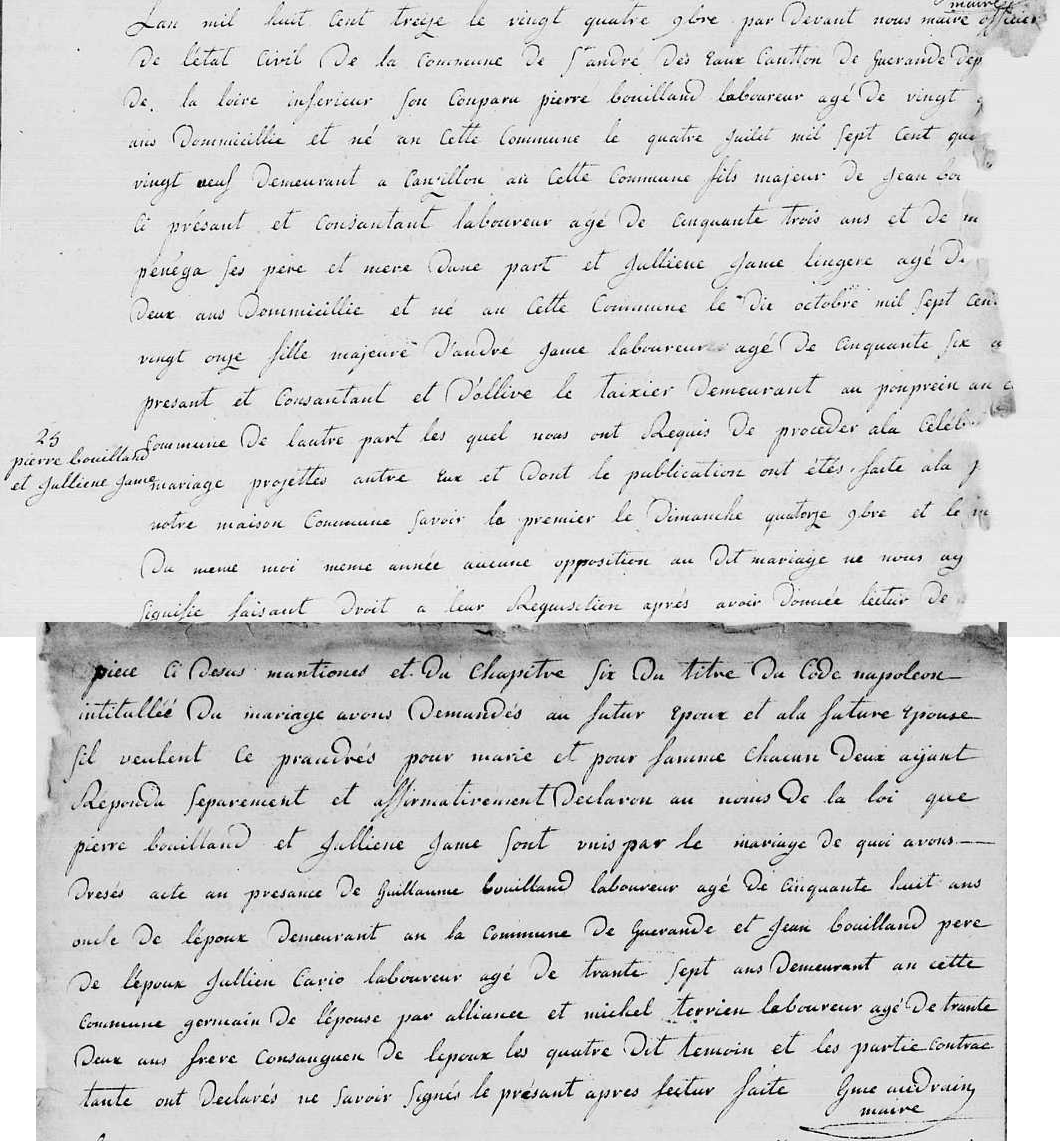 maire
Lan mil huit Cent treize le vingt quatre 9bre par Devant nous maire officier
De létat Civil De la Commune de St andré Des Eaux Cantton de Guerande Dép
De. la loire inferieur son Conparu pierre bouilland laboureur agé De vingt q
ans Dommicillie et né an Cette Commune le quatre Juilet mil sept Cent qua
vingt neuf Demeurant a Canvillon an Cette Commune fils majeur de Jean bou
Ci présant et Consantant laboureur agé de Cinquante trois ans et de m
penéga ses pére et mere Dune part et Julliene Jame lingere agé De
Deux ans Dommicillie et né an Cette Commune le Dix octobre mil sept Cen
vingt onze fille majeure D'andre Jame laboureur agé De Cinquante six a
présant et Consantant et D'ollive le taixier Demeurant au ponprein an c
Commune De lautre part les quel nous ont Requis De proceder ala Céléb
mariage projettes antre Eux et Dont le publication ont étés faite ala p
notre maison Commune savoir le premier le Dimanche quatorze 9bre et le
Du meme moi meme année aucune opposition au Dit mariage ne nous ay
signifie faisant Droit a leur Requisition aprés avoir Donnée lectur De
23
pierre bouilland
et Julliene Jame
piece Ci Desus mantiones et Du Chapitre six Du titre Du Code napoleon
intitulléé Du mariage avons Demandés au futur Epoux et ala future Epouse
sil veulent Ce prandrés pour marie et pour famme Chacun Deux aijant
Repondu separement et affirmativement Declaron au noms De la loi que
pierre bouilland et Julliene Jame sont unis par le mariage de quoi avons
Dresés acte an presance De Guillaume bouilland laboureur agé De Cinquante huit ans
oncle De lépoux Demeurant an la Commune De Guerande et Jean bouilland pere
De lépoux Jullien Cario laboureur agé De trante sept ans Demeurant an cette
Commune germain De lépouse par alliance et michel terrien laboureur agé De trante
Deux ans frere Consanguen De lepoux les quatre Dit temoin et les partie Contrac
tante ont Declarés ne savoir signés le présant apres lectur faite Gme audrain
maire